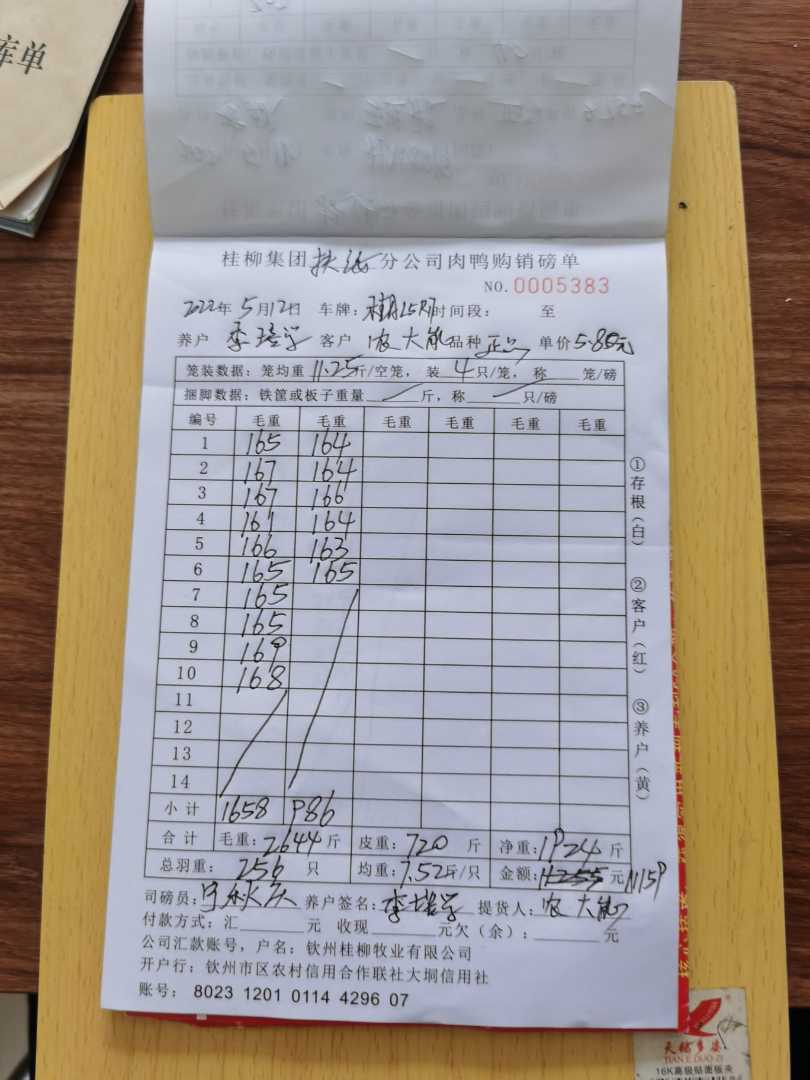 库单
桂柳集团扶绥分公司肉鸭购销磅单
NO.0005383
2022年5月12日 车牌: 时间段: 至
养户 李培学 客户 农大能 品种 正品 单价5.80元
笼装数据: 笼均重11.25斤/空笼, 装4只/笼, 称 笼/磅
捆脚数据: 铁筐或板子重量 斤, 称 只/磅
编号 毛重 毛重 毛重 毛重 毛重 毛重
1 165 164
2 167 164
3 167 166
4 161 164
5 166 163
6 165 165
7 165
8 165
9 169
10 168
11
12
13
14
小计 1658 986
合计 毛重:2644斤 皮重:720斤 净重:1924斤
总羽重: 256只 均重:7.52斤/只 金额: 元 11159
司磅员: 养户签名: 李培学 提货人: 农大能
付款方式: 汇 元 收现 元欠(余): 元
公司汇款账号, 户名: 钦州桂柳牧业有限公司
开户行: 钦州市区农村信用合作联社大垌信用社
账号: 8023 1201 0114 4296 07
①存根(白)
②客户(红)
③养户(黄)
天鹅多姿
TIAN E DUO ZI
16K高级贴面板夹